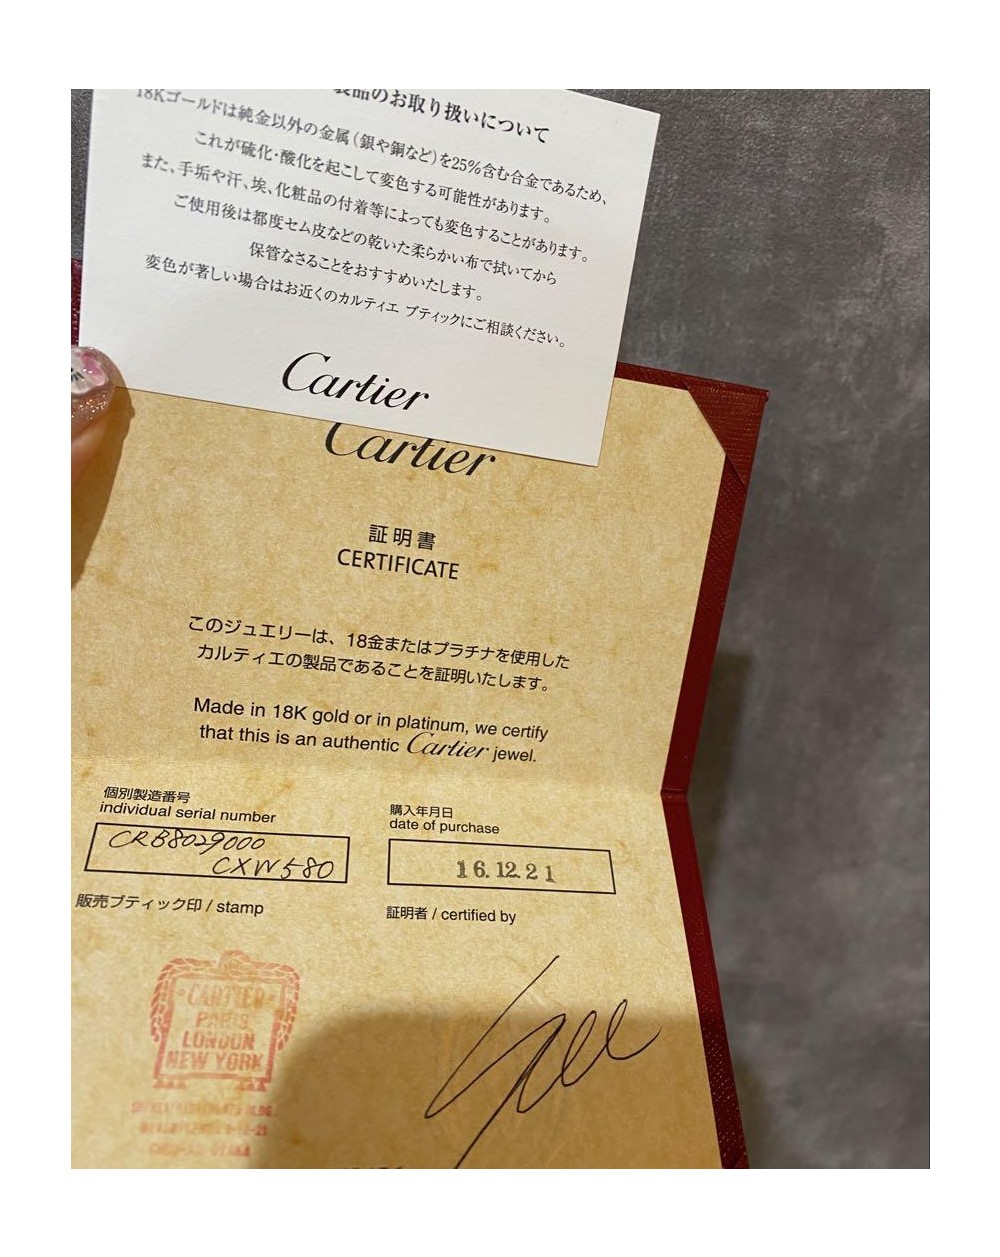 製品のお取り扱いについて
18Kゴールドは純金以外の金属(銀や銅など)を25%含む合金であるため、
これが硫化・酸化を起こして変色する可能性があります。
また、手垢や汗、埃、化粧品の付着等によっても変色することがあります。
ご使用後は都度セム皮などの乾いた柔らかい布で拭いてから
保管なさることをおすすめいたします。
変色が著しい場合はお近くのカルティエ ブティックにご相談ください。
Cartier
Cartier
証明書
CERTIFICATE
このジュエリーは、18金またはプラチナを使用した
カルティエの製品であることを証明いたします。
Made in 18K gold or in platinum, we certify
that this is an authentic Cartier jewel.
個別製造番号
individual serial number
CRB8029000
CXW580
購入年月日
date of purchase
16.12.21
販売ブティック印 / stamp
証明者 / certified by
CARTIER
PARIS
LONDON
NEW YORK